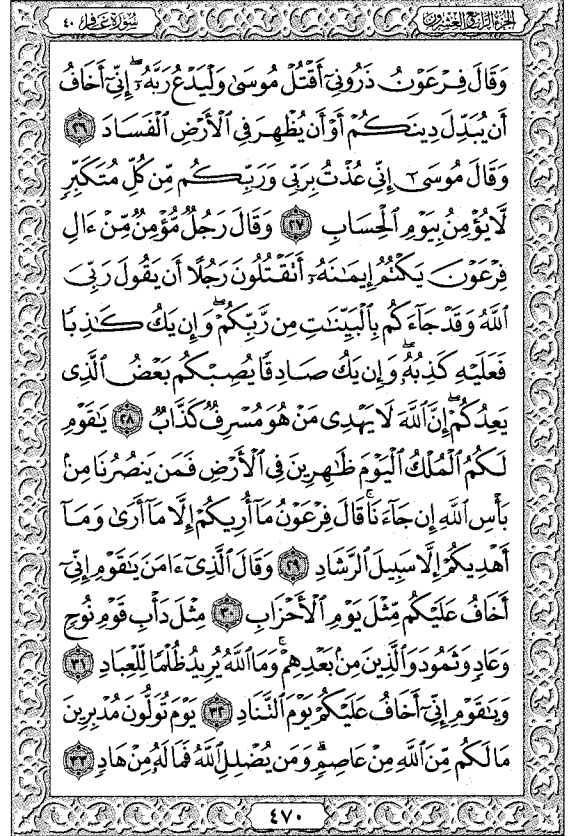 الجزء الرابع والعشرون سورة غافر ٤٠
وَقَالَ فِرْعَوْنُ ذَرُونِىٓ أَقْتُلْ مُوسَىٰ وَلْيَدْعُ رَبَّهُۥٓ ۖ إِنِّىٓ أَخَافُ
أَن يُبَدِّلَ دِينَكُمْ أَوْ أَن يُظْهِرَ فِى ٱلْأَرْضِ ٱلْفَسَادَ ٢٦
وَقَالَ مُوسَىٰٓ إِنِّى عُذْتُ بِرَبِّى وَرَبِّكُم مِّن كُلِّ مُتَكَبِّرٍ
لَّا يُؤْمِنُ بِيَوْمِ ٱلْحِسَابِ ٢٧ وَقَالَ رَجُلٌ مُّؤْمِنٌ مِّنْ ءَالِ
فِرْعَوْنَ يَكْتُمُ إِيمَـٰنَهُۥٓ أَتَقْتُلُونَ رَجُلًا أَن يَقُولَ رَبِّىَ
ٱللَّهُ وَقَدْ جَآءَكُم بِٱلْبَيِّنَـٰتِ مِن رَّبِّكُمْ ۖ وَإِن يَكُ كَـٰذِبًا
فَعَلَيْهِ كَذِبُهُۥ ۖ وَإِن يَكُ صَادِقًا يُصِبْكُم بَعْضُ ٱلَّذِى
يَعِدُكُمْ ۖ إِنَّ ٱللَّهَ لَا يَهْدِى مَنْ هُوَ مُسْرِفٌ كَذَّابٌ ٢٨ يَـٰقَوْمِ
لَكُمُ ٱلْمُلْكُ ٱلْيَوْمَ ظَـٰهِرِينَ فِى ٱلْأَرْضِ فَمَن يَنصُرُنَا مِنۢ
بَأْسِ ٱللَّهِ إِن جَآءَنَا ۚ قَالَ فِرْعَوْنُ مَآ أُرِيكُمْ إِلَّا مَآ أَرَىٰ وَمَآ
أَهْدِيكُمْ إِلَّا سَبِيلَ ٱلرَّشَادِ ٢٩ وَقَالَ ٱلَّذِىٓ ءَامَنَ يَـٰقَوْمِ إِنِّىٓ
أَخَافُ عَلَيْكُم مِّثْلَ يَوْمِ ٱلْأَحْزَابِ ٣٠ مِثْلَ دَأْبِ قَوْمِ نُوحٍ
وَعَادٍ وَثَمُودَ وَٱلَّذِينَ مِنۢ بَعْدِهِمْ ۚ وَمَا ٱللَّهُ يُرِيدُ ظُلْمًا لِّلْعِبَادِ ٣١
وَيَـٰقَوْمِ إِنِّىٓ أَخَافُ عَلَيْكُمْ يَوْمَ ٱلتَّنَادِ ٣٢ يَوْمَ تُوَلُّونَ مُدْبِرِينَ
مَا لَكُم مِّنَ ٱللَّهِ مِنْ عَاصِمٍ ۗ وَمَن يُضْلِلِ ٱللَّهُ فَمَا لَهُۥ مِنْ هَادٍ ٣٣
٤٧٠